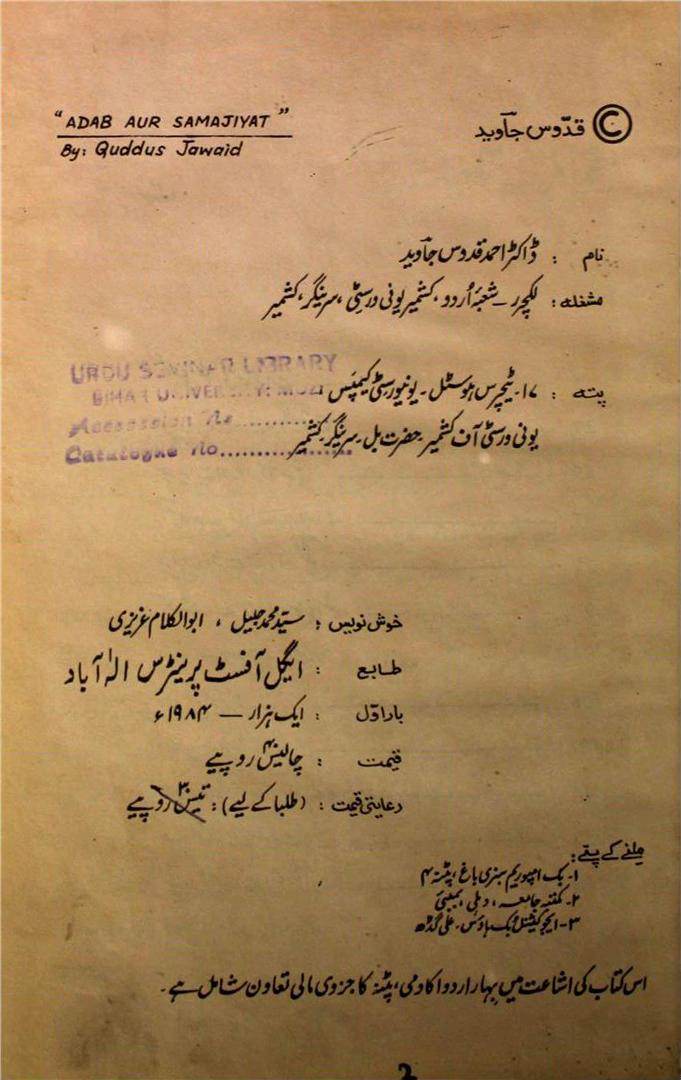 "ADAB AUR SAMAJIYAT"
By: Quddus Jawaid
© قدّوس جاوید
نام : ڈاکٹر احمد قدوس جاوید
مشغلہ : لکچرر ـ شعبۂ اُردو ، کشمیر یونی ورسٹی ، سرینگر ، کشمیر
پتہ : ۱۷ ـ ٹیچرس ہوسٹل ـ یونیورسٹی کیمپس
یونی ورسٹی آف کشمیر حضرت بل ـ سرینگر کشمیر
URDU SEMINAR LIBRARY
BIHAR UNIVERSITY: MUZ
Accession No..........
Catalogue no..................
خوش نویس : سیّد محمد جلیل ، ابوالکلام عزیزی
طابع : ایگل آفسٹ پرینٹرس الٰہ آباد
بار اوّل : ایک ہزار — ۱۹۸۴ء
قیمت : چالیس ۴۰ روپیے
رعایتی قیمت : (طلبا کے لیے) : تیس ۳۰ روپیے
ملنے کے پتے :
۱ـ بک امپوریم سبزی باغ ، پٹنہ ۴
۲ـ مکتبہ جامعہ ، دہلی ، بمبئی
۳ـ ایجوکیشنل بک ہاؤس ـ علی گڑھ
اس کتاب کی اشاعت میں بہار اردو اکادمی ، پٹنہ کا جزوی مالی تعاون شامل ہے ۔
2